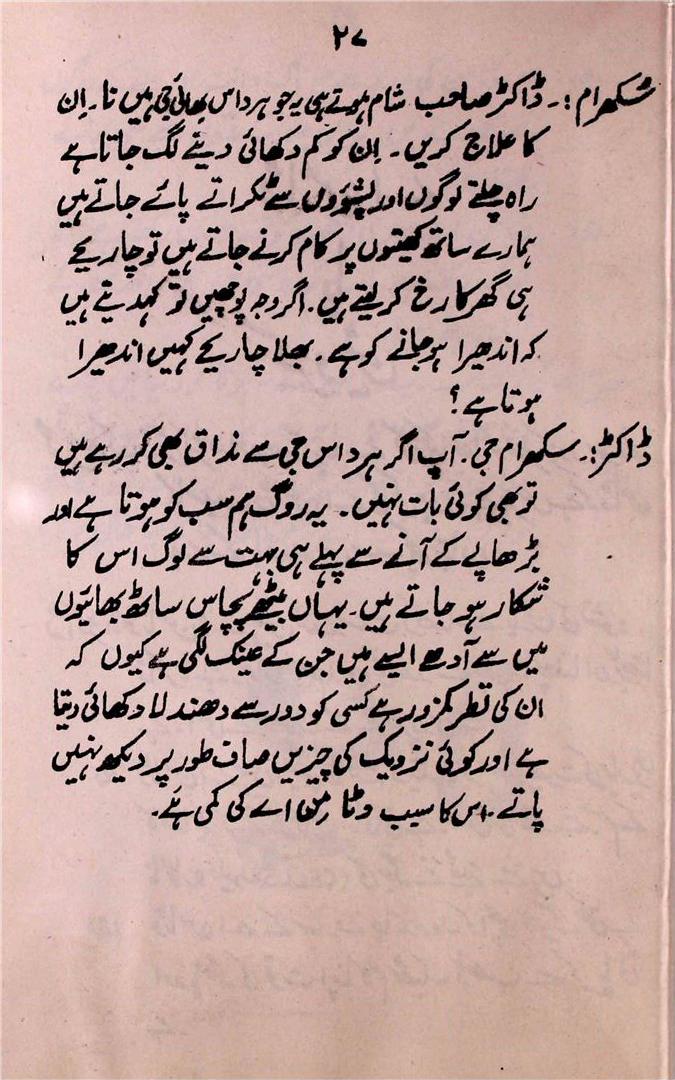 ۲۷
سُکھرام :۔ ڈاکٹر صاحب شام ہوتے ہی یہ جو ہرداس بھائی جی ہیں نا۔ اِن
کا علاج کریں۔ اِن کو کم دکھائی دینے لگ جاتا ہے
راہ چلتے لوگوں اور پشوؤں سے ٹکراتے پائے جاتے ہیں
ہمارے ساتھ کھیتوں پر کام کرنے جاتے ہیں تو چار بجے
ہی گھر کا رخ کر لیتے ہیں۔ اگر وجہ پوچھیں تو کہدیتے ہیں
کہ اندھیرا ہو جانے کو ہے۔ بھلا چار بجے کہیں اندھیرا
ہوتا ہے؟
ڈاکٹر:۔ سکھرام جی۔ آپ اگر ہرداس جی سے مذاق بھی کر رہے ہیں
تو بھی کوئی بات نہیں۔ یہ روگ ہم سب کو ہوتا ہے اور
بڑھاپے کے آنے سے پہلے ہی بہت سے لوگ اس کا
شکار ہو جاتے ہیں۔ یہاں بیٹھے پچاس ساٹھ بھائیوں
میں سے آدھے ایسے ہیں جن کے عینک لگی ہے کیوں کہ
ان کی نظر کمزور ہے کسی کو دور سے دھندلا دکھائی دیتا
ہے اور کوئی نزدیک کی چیزیں صاف طور پر دیکھ نہیں
پاتے۔ اس کا سبب وٹامِن اے کی کمی ہے۔